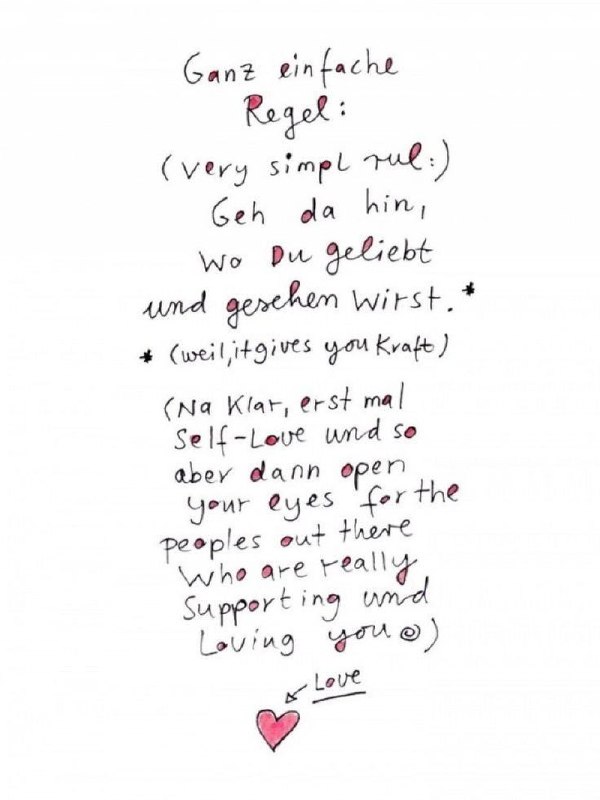 Ganz einfache
Regel:
(very simpl rul:)
Geh da hin,
wo Du geliebt
und gesehen wirst.*
* (weil, it gives you Kraft)
(Na klar, erst mal
Self-Love und so
aber dann open
your eyes for the
peoples out there
who are really
supporting und
Loving you☺)
Love